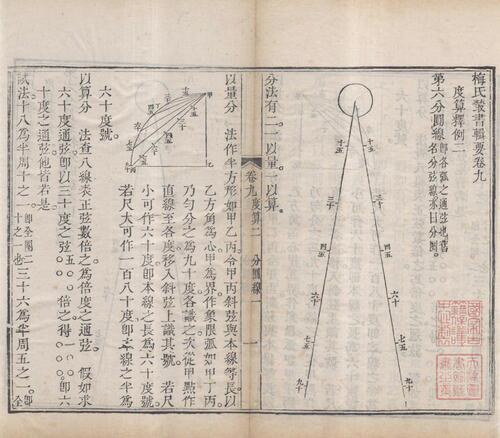 梅氏叢書輯要卷九
度算釋例二
第六分圓線 即各弧之通弦也舊名分弦線末曰分圓
十五
三十
四五
六十
七五
九十
十五
三十
四五
六十
七五
九十
分法有二一以量一以算
卷九 度算二 分圓線 一
以量分 法作半方形如甲乙丙令甲丙斜弦與本線等長以
乙方角為心甲為界作象限弧如甲丁丙
乃勻分之為九十度各識之次從甲點作
直線至各度移入斜弦上識其號 若尺
小可作六十度即本線之長為六十度
若尺大可作一百八十度即本線之半為
六十度號
以算分 法查八線表正弦數倍之為倍度之通弦 假如求
六十度通弦即以三十度之弦五〇〇〇倍之得一〇〇〇即六
十度之通弦他皆若是
試法十八為半周十之一即全圈二十之一也三十六為半周五之一即全